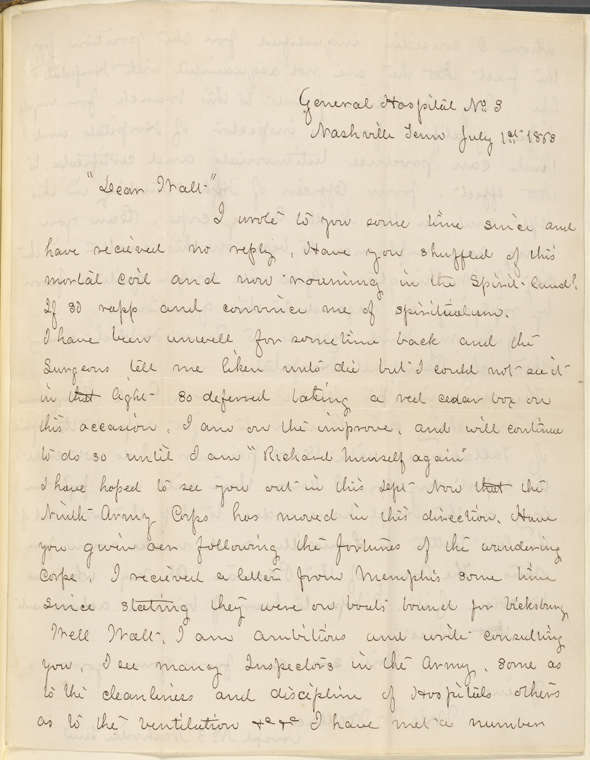 General Hospital No 3
Nashville Tenn July 1st 1863
"Dear Walt"
I wrote to you some time since and
have recieved no reply. Have you shuffled of this
mortal coil and now roaming in the Spirit-land?
If so rapp and convince me of spiritualism.
I have been unwell for sometime back and the
Surgeons tell me liken unto die but I could not see it
in that light so deferred taking a red cedar box on
this occasion. I am on the improve, and will continue
to do so until I am "Richard himself again"
I have hoped to see you out in this Dept Now that the
Ninth Army Corps has moved in this direction. Have
you given over following the fortunes of the wandering
Corps. I recieved a letter from Memphis some time
since stating they were on boats bound for Vicksburg,
Well Walt, I am ambitious and write consulting
you, I see many Inspectors in the Army, some as
to the cleanliness and discipline of Hospitals others
as to the ventilation &c &c I have met a number